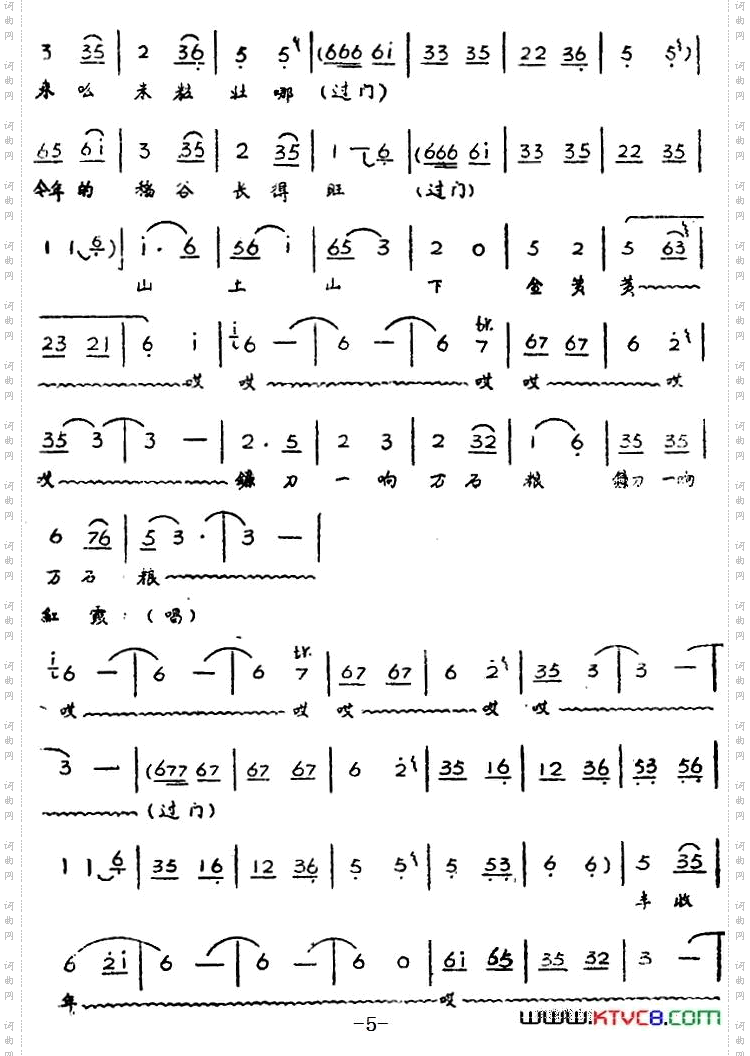 3 35 | 2 36 | 5 5 | (666 6i | 33 35 | 22 36 | 5 5 ) |
来么来粒壮哪(过门)
65 6i | 3 35 | 2 35 | 1 6 | (666 6i | 33 35 | 22 35 |
今年的稻谷长得旺 (过门)
1 1 6 ) | i · 6 | 56 i | 65 3 | 2 0 | 5 2 | 5 63
山 土 山 下 金 黄 黄
23 21 | 6 i | i 6 — | 6 — | 6 7 | 67 67 | 6 2 |
哎 哎 哎 哎 哎
tr.
35 3 | 3 — | 2 · 5 | 2 3 | 2 32 | 1 6 | 35 35
哎 镰刀一响万石粮 镰刀一响
6 76 | 5 3 · | 3 — |
万石粮
紅霞:(唱)
i 6 — | 6 — | 6 7 | 67 67 | 6 2 | 35 3 | 3 — |
哎 哎 哎 哎 哎
tr.
3 — | (677 67 | 67 67 | 6 2 | 35 16 | 12 36 | 53 56 |
(过门)
1 1 6 | 35 16 | 12 36 | 5 5 | 5 53 | 6 6 ) | 5 35 |
丰收
6 2i | 6 — | 6 — | 6 0 | 6i 65 | 35 32 | 3 — |
年 哎
-5-
www.KTVC8.com
词曲网